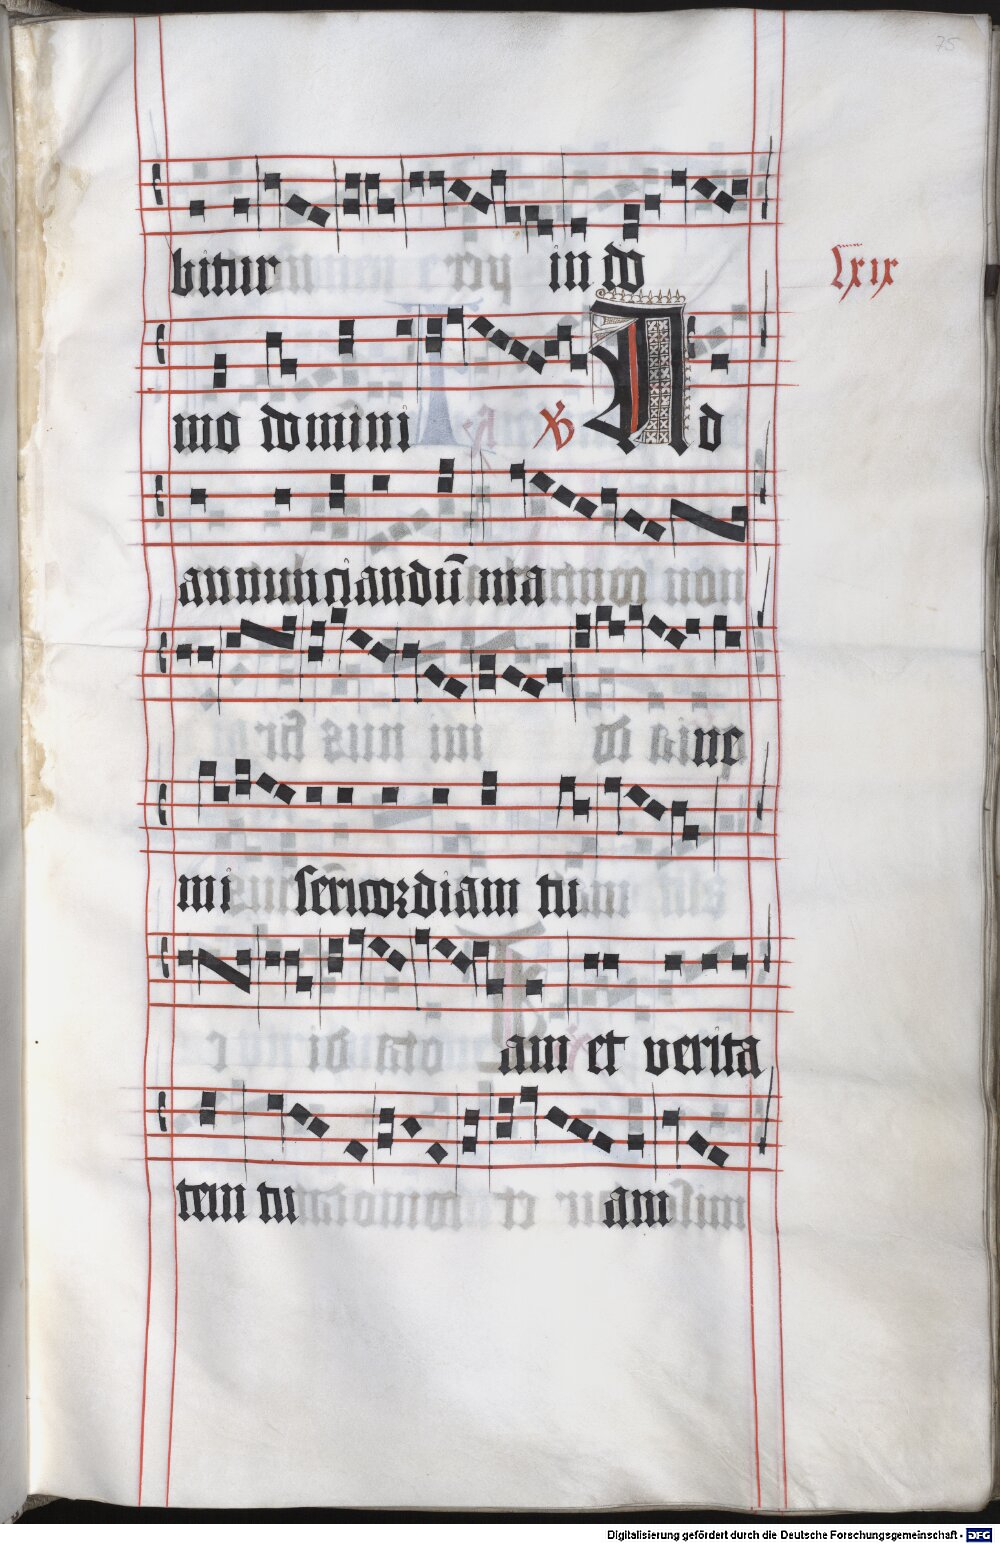 75
bitur in do
lxix
mo domini ℣ Ad
annunciandu̅ ma
ne
mi sericordiam tu
am et verita
tem tu am
Digitalisierung gefördert durch die Deutsche Forschungsgemeinschaft - DFG